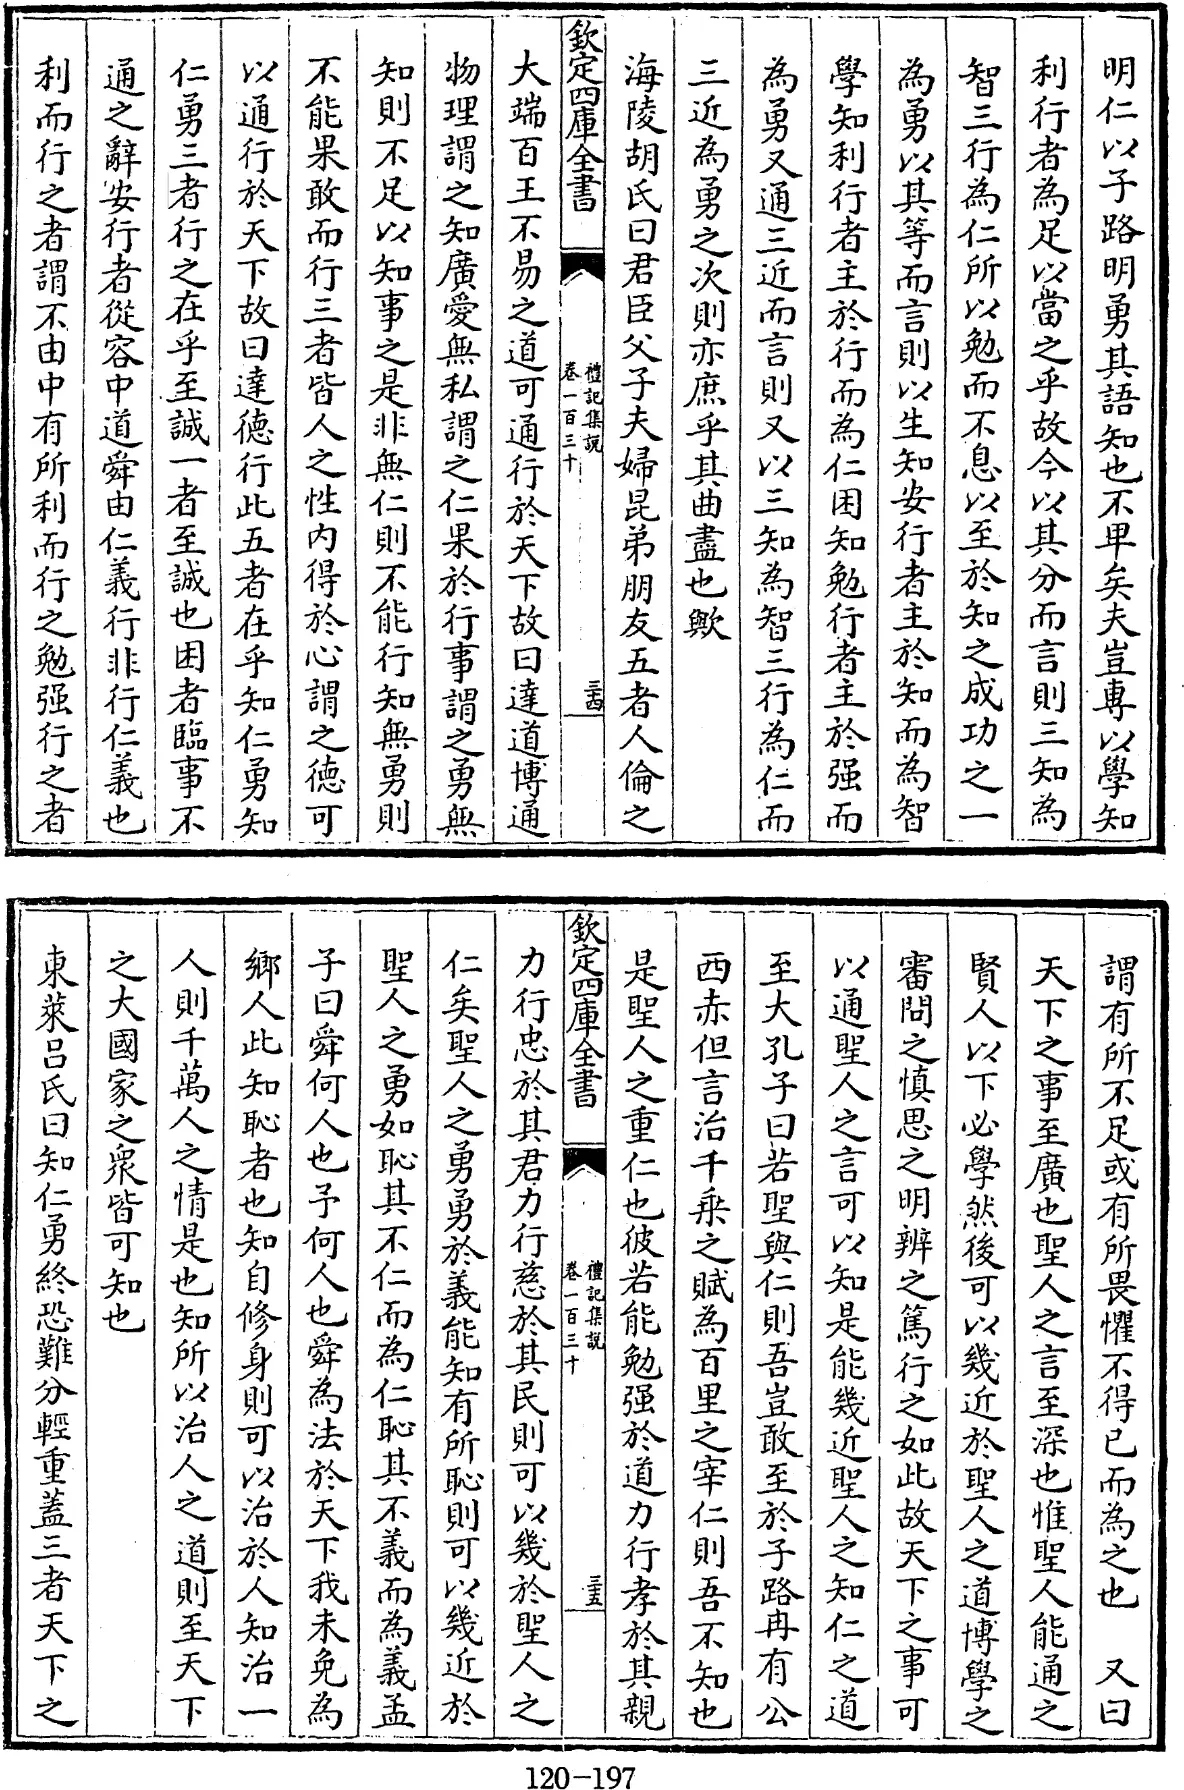 明仁以子路明勇其語知也不卑矣夫豈專以學知
利行者為足以當之乎故今以其分而言則三知為
智三行為仁所以勉而不息以至於知之成功之一
為勇以其等而言則以生知安行者主於知而為智
學知利行者主於行而為仁困知勉行者主於强而
為勇又通三近而言則又以三知為智三行為仁而
三近為勇之次則亦庶乎其曲盡也歟
海陵胡氏曰君臣父子夫婦昆弟朋友五者人倫之
欽定四庫全書
禮記集説
卷一百三十
三十四
大端百王不易之道可通行於天下故曰達道博通
物理謂之知廣愛無私謂之仁果於行事謂之勇無
知則不足以知事之是非無仁則不能行知無勇則
不能果敢而行三者皆人之性内得於心謂之德可
以通行於天下故曰達德行此五者在乎知仁勇知
仁勇三者行之在乎至誠一者至誠也困者臨事不
通之辭安行者從容中道舜由仁義行非行仁義也
利而行之者謂不由中有所利而行之勉强行之者
謂有所不足或有所畏懼不得已而為之也　又曰
天下之事至廣也聖人之言至深也惟聖人能通之
賢人以下必學然後可以幾近於聖人之道博學之
審問之慎思之明辨之篤行之如此故天下之事可
以通聖人之言可以知是能幾近聖人之知仁之道
至大孔子曰若聖與仁則吾豈敢至於子路冉有公
西赤但言治千乘之賦為百里之宰仁則吾不知也
是聖人之重仁也彼若能勉强於道力行孝於其親
欽定四庫全書
禮記集説
卷一百三十
三十五
力行忠於其君力行慈於其民則可以幾於聖人之
仁矣聖人之勇勇於義能知有所恥則可以幾近於
聖人之勇如恥其不仁而為仁恥其不義而為義孟
子曰舜何人也予何人也舜為法於天下我未免為
鄉人此知恥者也知自修身則可以治於人知治一
人則千萬人之情是也知所以治人之道則至天下
之大國家之衆皆可知也
東萊吕氏曰知仁勇終恐難分輕重蓋三者天下之
120-197